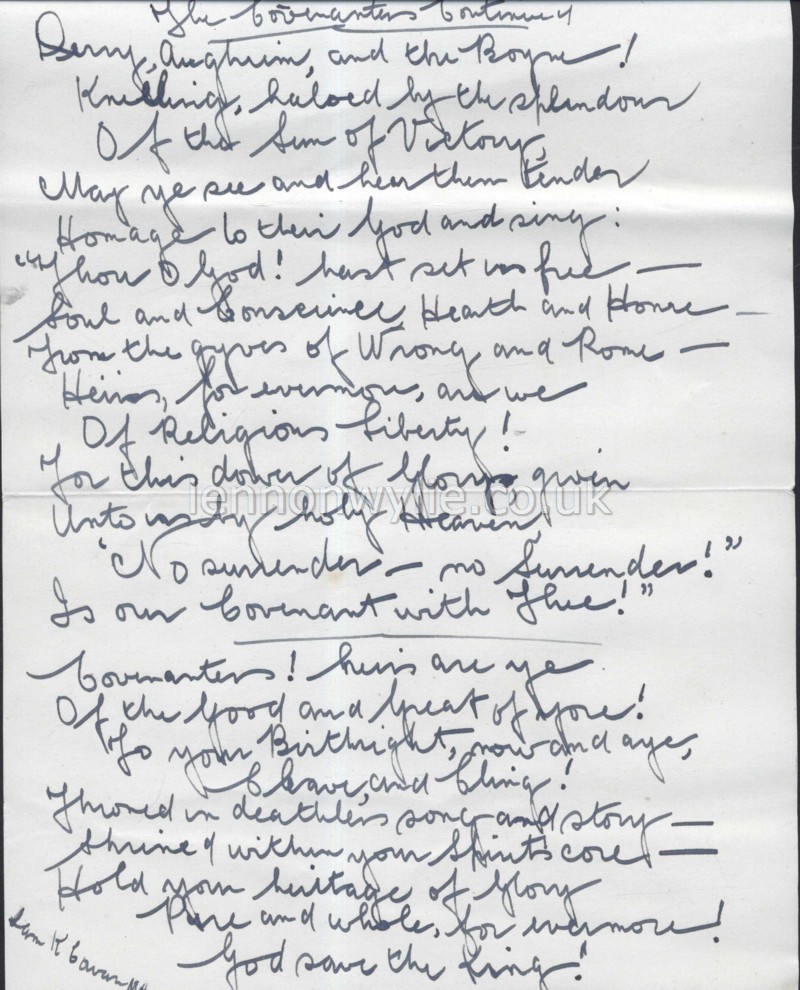 The Covenanters Continued
Derry, Aughrim, and the Boyne!
Kneeling, haloed by the splendour
Of the Sun of Victory,
May ye see and hear them tender
Homage to their God and sing:
"Thou O God! hast set us free —
Soul and Conscience Hearth and Home —
From the gyves of Wrong and Rome —
Heirs, for evermore, are we
Of Religious Liberty!
For this dower of Glory, given
Unto us by holy Heaven,
'No surrender — no Surrender!"
Is our Covenant with Thee!"
Covenanters! heirs are ye
Of the Good and Great of yore!
To your Birthright, now and aye,
Cleave, and Cling!
Throned in deathless song and story —
Shrined within your Spirits core —
Hold your heritage of Glory
Pure and whole, for evermore!
God save the King!"
Sam K Cowan MA
lennonwylie.co.uk